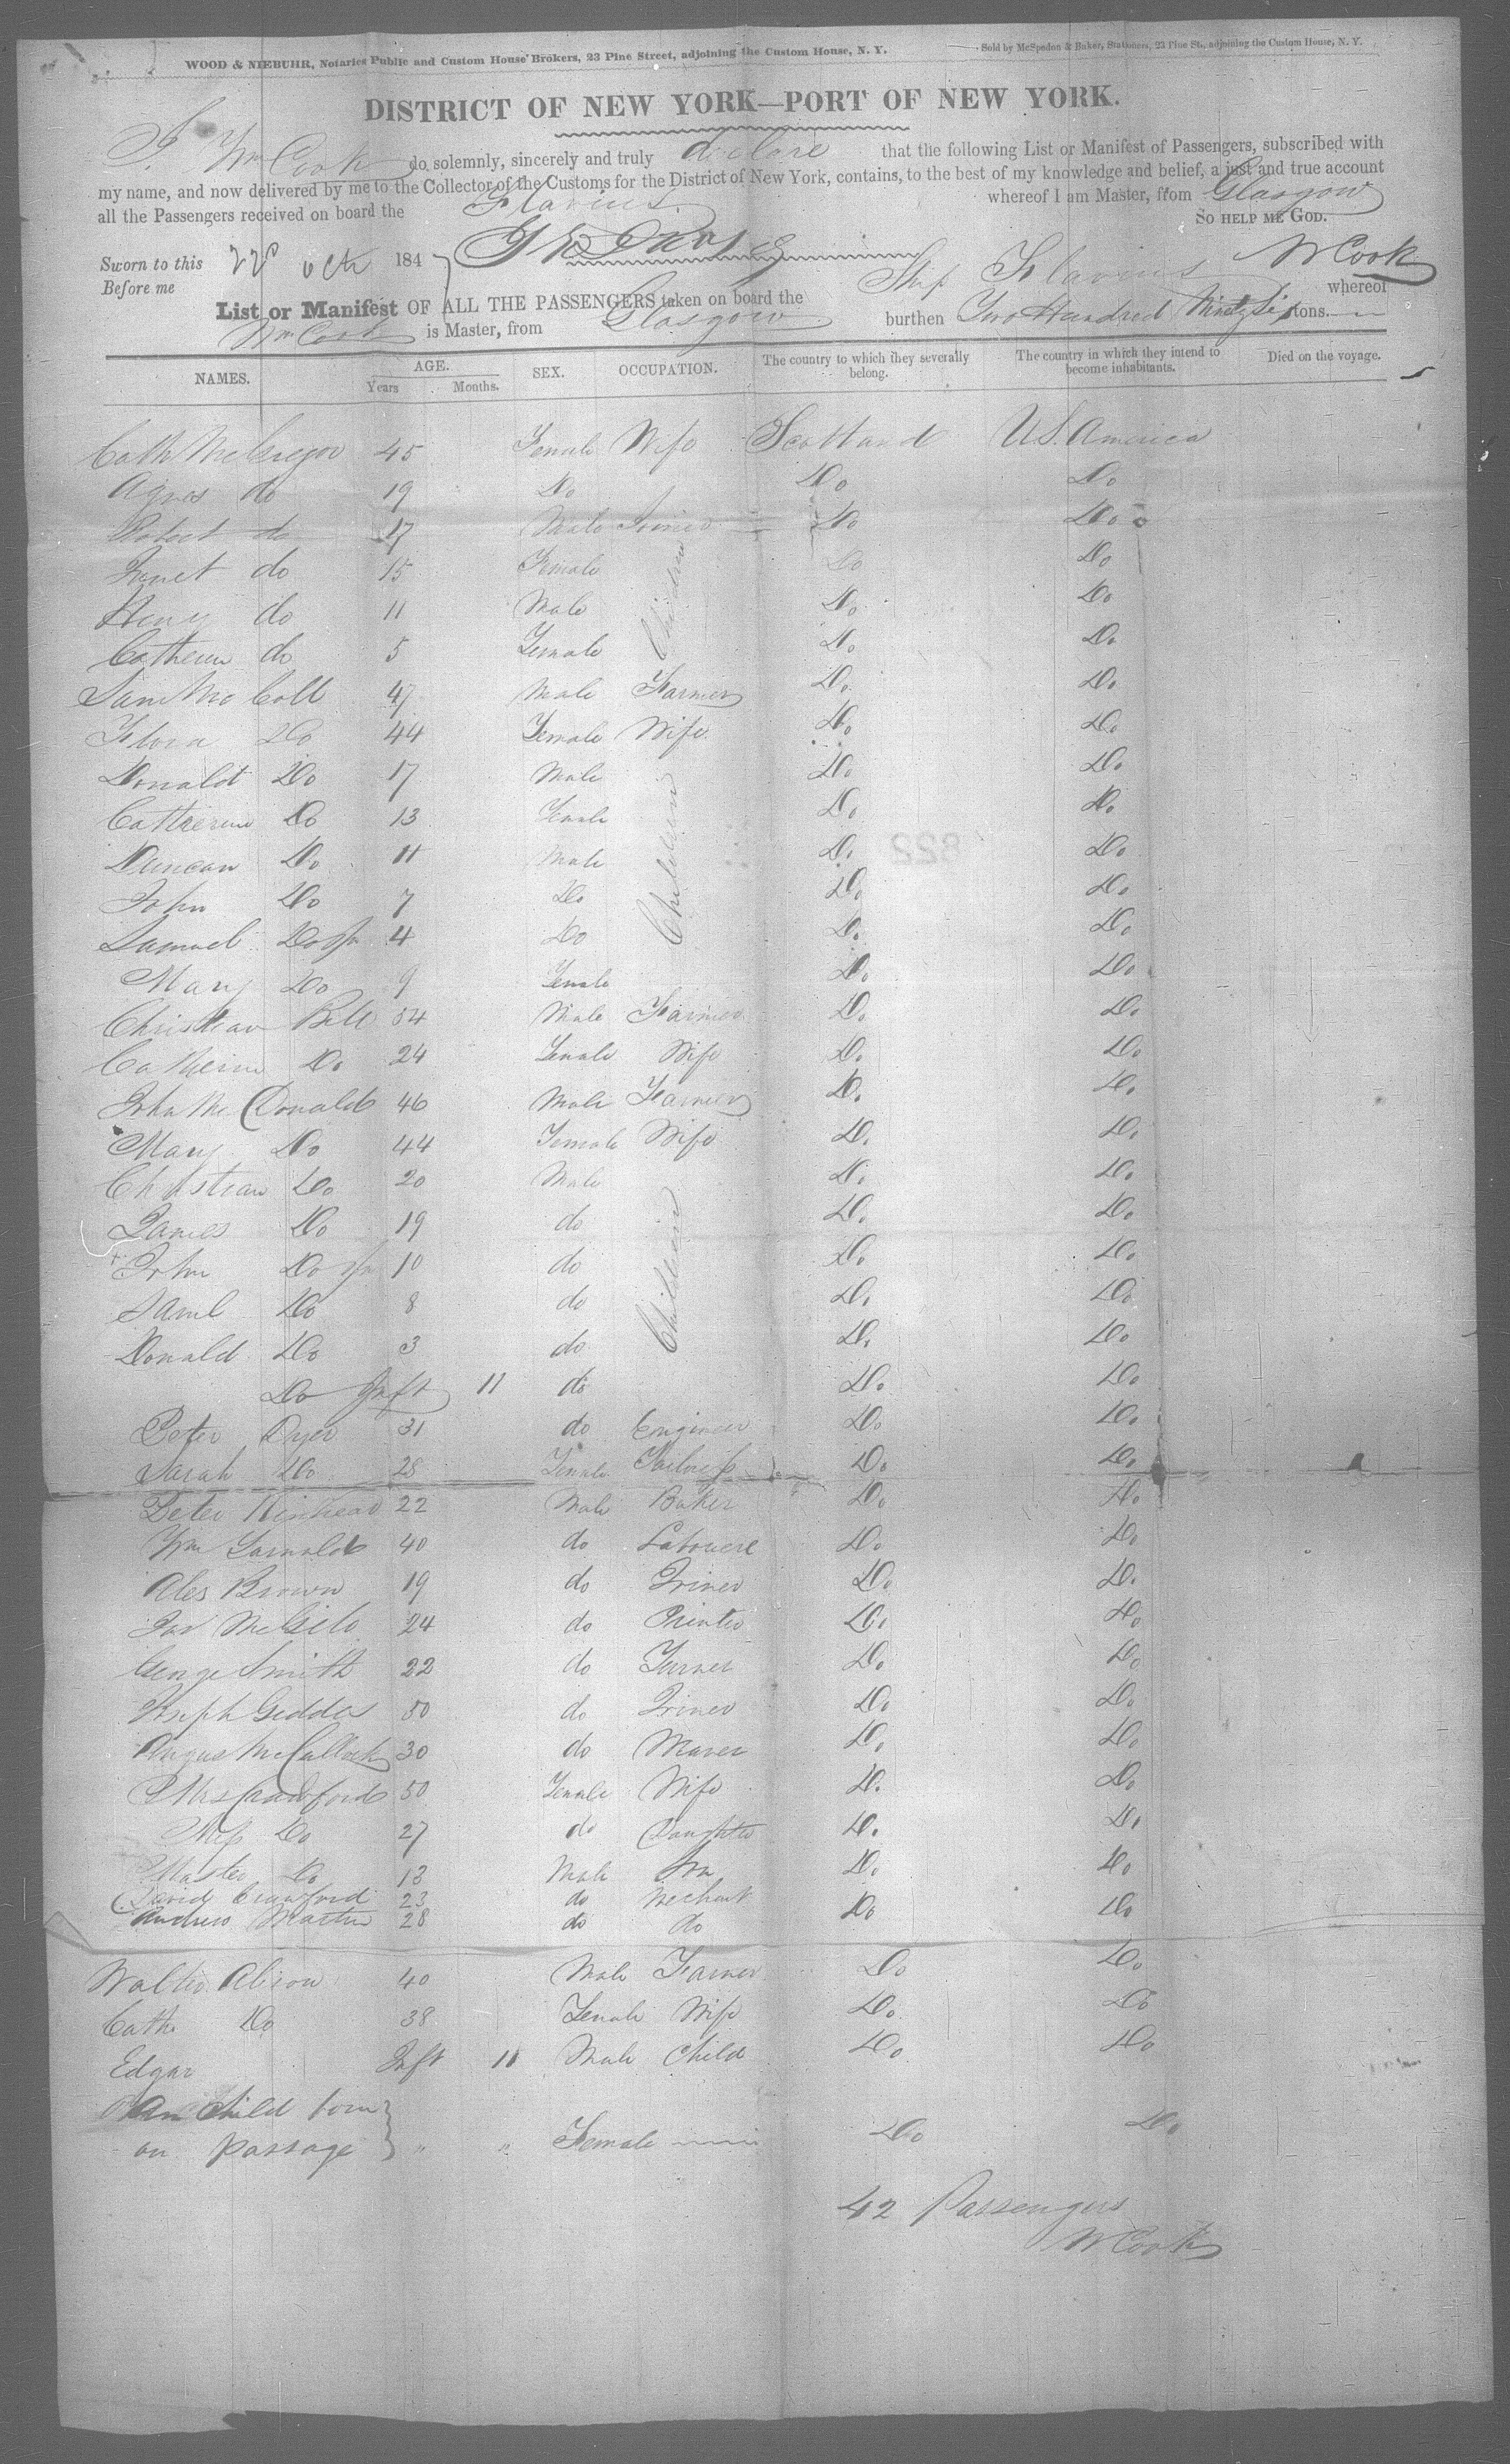 WOOD & NIEBUHR, Notaries Public and Custom House Brokers, 23 Pine Street, adjoining the Custom House, N. Y.
Sold by McSpedon & Baker, Stationers, 23 Pine St., adjoining the Custom House, N. Y.
DISTRICT OF NEW YORK—PORT OF NEW YORK.
I, Wm Cook do solemnly, sincerely and truly declare that the following List or Manifest of Passengers, subscribed with
my name, and now delivered by me to the Collector of the Customs for the District of New York, contains, to the best of my knowledge and belief, a just and true account
all the Passengers received on board the Flavius whereof I am Master, from Glasgow
SO HELP ME GOD.
Sworn to this 22 Oct 1847 W Cook
Before me
List or Manifest OF ALL THE PASSENGERS taken on board the Ship Flavius whereof
Wm Cook is Master, from Glasgow burthen Two Hundred Ninety Six tons.
NAMES. AGE. Years Months. SEX. OCCUPATION. The country to which they severally belong. The country in which they intend to become inhabitants. Died on the voyage.
Cath McGregor 45 Female Wife Scotland U.S. America
Agnes do 19 Do Do Do
Robert do 17 Male Joiner Do Do
Janet do 15 Female Do Do
Henry do 11 Male Children Do Do
Catherin do 5 Female Do Do
Saml McColl 47 Male Farmer Do Do
Flora Do 44 Female Wife Do Do
Donald Do 17 Male Do Do
Catherin Do 13 Female Do Do
Duncan Do 11 Male Children Do Do
John Do 7 Do Do Do
Samuel Do Jn 4 Do Do Do
Mary Do 9 Female Do Do
Christian Bell 54 Male Farmer Do Do
Catherin Do 24 Female Wife Do Do
John McDonald 46 Male Farmer Do Do
Mary Do 44 Female Wife Do Do
Christian Do 20 Male Do Do
James Do 19 do Do Do
John Do Jn 10 do Children Do Do
Saml Do 8 do Do Do
Donald Do 3 do Do Do
Do Inft 11 do Do Do
Peter Dyer 31 do Engineer Do Do
Sarah Do 28 Female Do Do
Peter Kinhead 22 Male Baker Do Do
Wm 40 do Labourer Do Do
Alex Brown 19 do Do Do
Jas 24 do Printer Do Do
George Smith 22 do Turner Do Do
Joseph Geddes 50 do Do Do
Angus McCulloch 30 do Do Do
Mrs Crawford 50 Female Wife Do Do
Miss Do 27 do Daughter Do Do
Master Do 13 Male Son Do Do
David Crawford 23 do Mechant Do Do
Andrew Martin 28 do do
Walter Alison 40 Male Farmer Do Do
Cath Do 38 Female Wife Do Do
Edgar Inft 11 Male Child Do Do
An Child born
on passage } " " Female Do Do
42 Passengers
W Cook